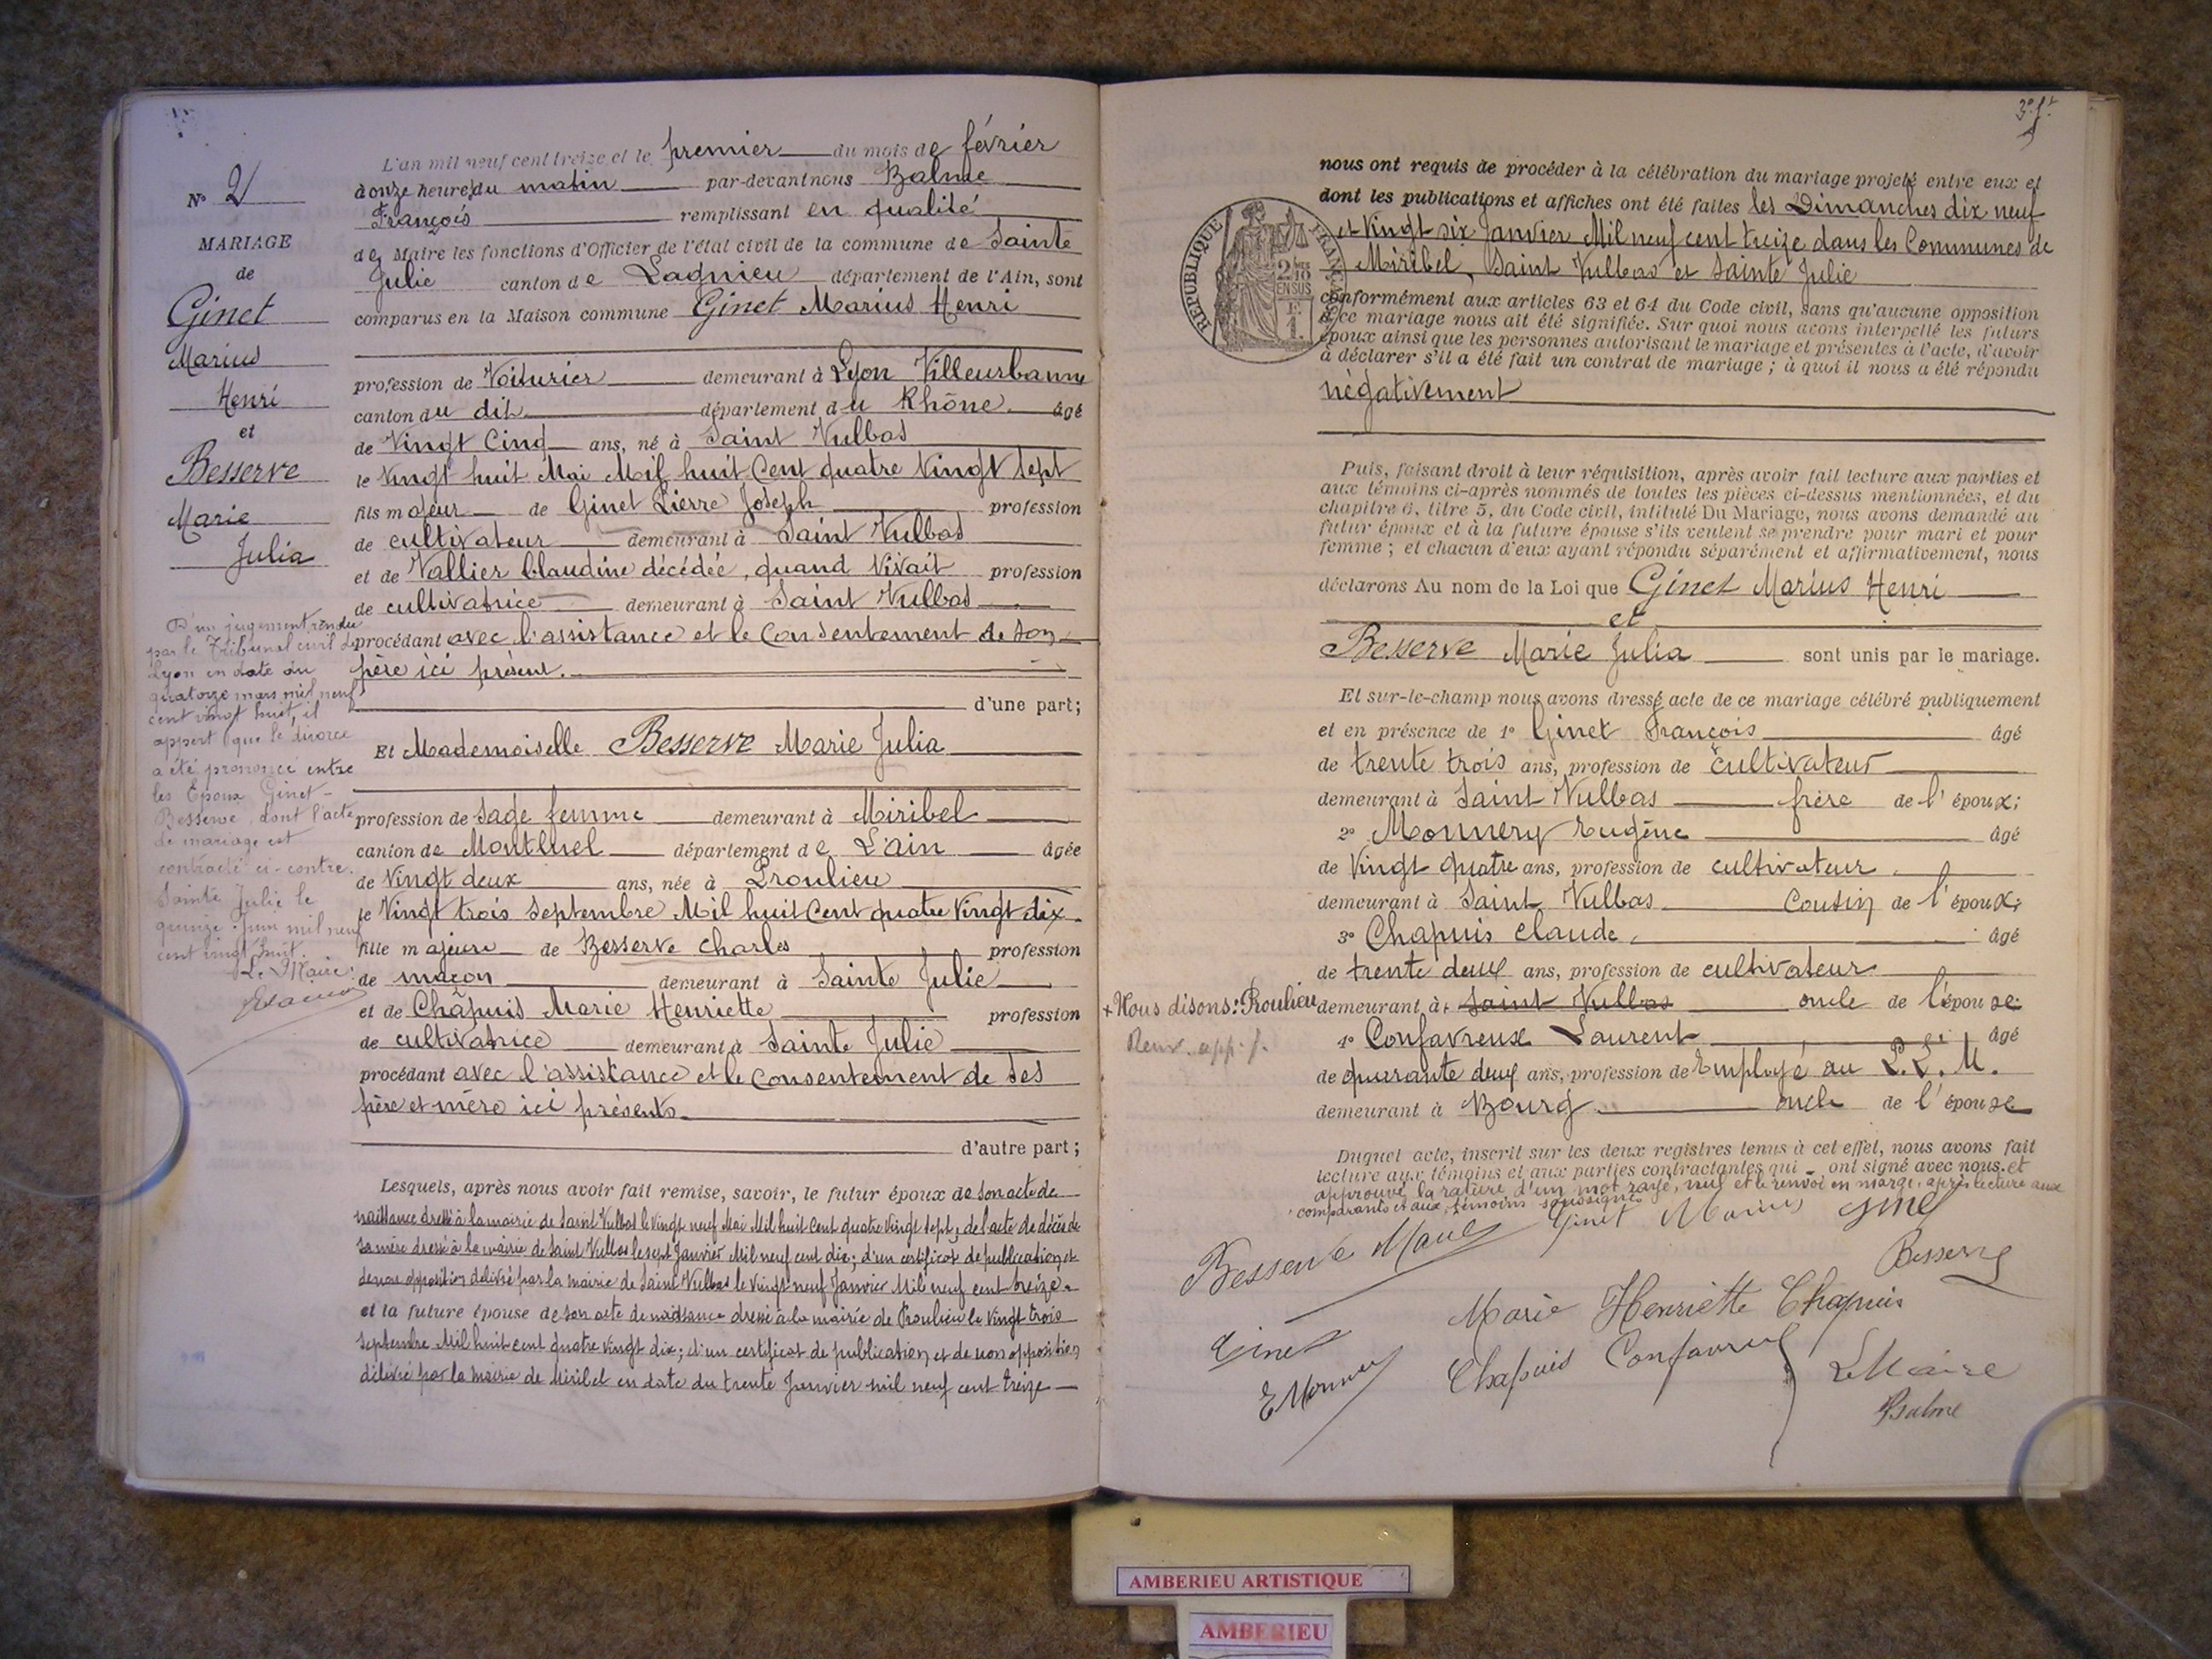 N° 2
MARIAGE
de
Ginet
Marius
Henri
et
Besserve
Marie
Julia
D'un jugement rendu
par le Tribunal civil de
Lyon en date du
quatorze mars mil neuf
cent vingt huit, il
appert que le divorce
a été prononcé entre
les Epoux Ginet-
Besserve, dont l'acte
de mariage est
contracté ci-contre.
Sainte Julie le
quinze Juin mil neuf
cent vingt huit.
Le Maire:
L'an mil neuf cent treize et le premier du mois de février
à onze heures du matin par-devant nous Balme
François remplissant en qualité
de Maire les fonctions d'Officier de l'état civil de la commune de Sainte
Julie canton de Lagnieu département de l'Ain, sont
comparus en la Maison commune Ginet Marius Henri
profession de Voiturier demeurant à Lyon Villeurbanne
canton du dit département du Rhône âgé
de Vingt Cinq ans, né à Saint Vulbas
le Vingt huit Mai Mil huit Cent quatre Vingt Sept
fils majeur de Ginet Pierre Joseph profession
de cultivateur demeurant à Saint Vulbas
et de Vallier Claudine décédée, quand Vivait profession
de cultivatrice demeurant à Saint Vulbas
procédant avec l'assistance et le Consentement de son
père ici présent.
d'une part;
Et Mademoiselle Besserve Marie Julia
profession de Sage femme demeurant à Miribel
canton de Montluel département de L'ain âgée
de Vingt deux ans, née à Proulieu
le Vingt trois Septembre Mil huit Cent quatre Vingt dix
fille majeure de Besserve Charles profession
de maçon demeurant à Sainte Julie
et de Chapuis Marie Henriette profession
de cultivatrice demeurant à Sainte Julie
procédant avec l'assistance et le Consentement de ses
père et mère ici présents
d'autre part;
Lesquels, après nous avoir fait remise, savoir, le futur époux de son acte de
naissance dressé à la mairie de Saint Vulbas le Vingt neuf Mai Mil huit Cent quatre Vingt Sept, de l'acte de décès de
sa mère dressé à la mairie de Saint Vulbas le sept Janvier Mil neuf cent dix; d'un certificat de publication et
de non opposition délivré par la mairie de Saint Vulbas le Vingt neuf Janvier Mil neuf cent treize.
et la future épouse de son acte de naissance dressé à la mairie de Proulieu le Vingt trois
Septembre Mil huit cent quatre vingt dix; d'un certificat de publication et de non opposition
délivré par la Mairie de Miribel en date du trente Janvier mil neuf cent treize
RÉPUBLIQUE FRANÇAISE
2/10
EN SUS
1 F.
nous ont requis de procéder à la célébration du mariage projeté entre eux et
dont les publications et affiches ont été faites les Dimanches dix neuf
et Vingt six Janvier Mil neuf cent treize dans les Communes de
Miribel, Saint Vulbas et Sainte Julie
conformément aux articles 63 et 64 du Code civil, sans qu'aucune opposition
à ce mariage nous ait été signifiée. Sur quoi nous avons interpellé les futurs
époux ainsi que les personnes autorisant le mariage et présentes à l'acte, d'avoir
à déclarer s'il a été fait un contrat de mariage; à quoi il nous a été répondu
négativement
Puis, faisant droit à leur réquisition, après avoir fait lecture aux parties et
aux témoins ci-après nommés de toutes les pièces ci-dessus mentionnées, et du
chapitre 6, titre 5, du Code civil, intitulé Du Mariage, nous avons demandé au
futur époux et à la future épouse s'ils veulent se prendre pour mari et pour
femme; et chacun d'eux ayant répondu séparément et affirmativement, nous
déclarons Au nom de la Loi que Ginet Marius Henri
et
Besserve Marie Julia sont unis par le mariage.
Et sur-le-champ nous avons dressé acte de ce mariage célébré publiquement
et en présence de 1° Ginet François âgé
de trente trois ans, profession de cultivateur
demeurant à Saint Vulbas frère de l'époux;
2° Monnery Eugène âgé
de Vingt quatre ans, profession de cultivateur
demeurant à Saint Vulbas Cousin de l'époux;
3° Chapuis Claude, âgé
de trente deux ans, profession de cultivateur
+ Nous disons: Proulieu demeurant à + Saint Vulbas oncle de l'épouse
4° Confavreux Laurent âgé
de quarante deux ans, profession de Employé au P.L.M.
demeurant à Bourg oncle de l'épouse
Duquel acte, inscrit sur les deux registres tenus à cet effet, nous avons fait
lecture aux témoins et aux parties contractantes qui ont signé avec nous. et
approuvé la rature d'un mot rayé, nul et le renvoi en marge, après lecture aux
comparants et aux témoins soussignés
Besserve Marie Ginet Marius Ginet
Besserve
Marie Henriette Chapuis
Ginet
E Monnery Chapuis Confavreux Le Maire
Balme
AMBERIEU ARTISTIQUE
AMBERIEU